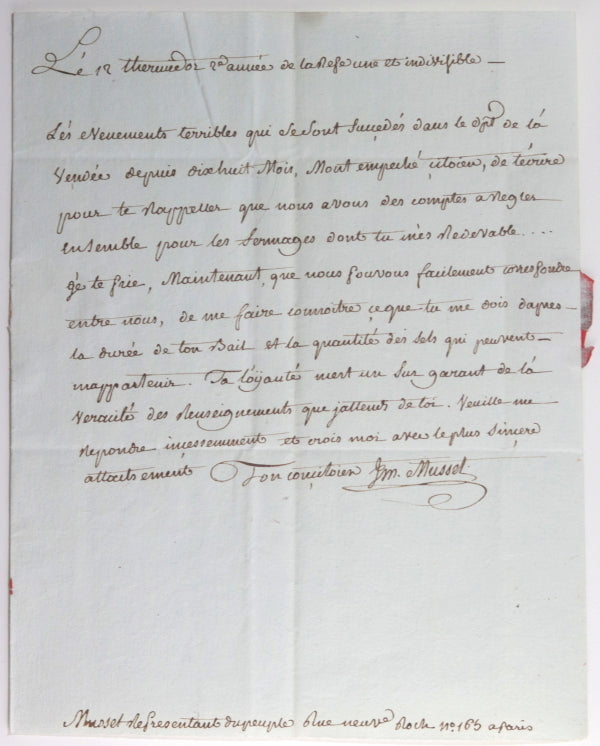 Lé 12 thermedor 2e année de la Repe une et indivisible —
Lés evenements terribles qui se sont sucçedés dans le dpt de lá
Vendée depuis dixhuit mois, mont empeché çitoien, de tecrire
pour te rappeller que nous avons des comptes a regler
ensemble pour les fermages dont tu mès redevable....
gé te prie, Maintenant, que nous pouvons façilement correspondre
entre nous, de me faire connoitre ce que tu me dois dapres
la durée de ton Bail et la quantité des sels qui peuvent —
mappartenir. Ta loÿauté mest un sur garant de lá
veraçité des renseignements que jattends de toi. Veuille me
repondre incessemment et crois moi avec le plus sinçere
attachement Ton conçitoien Jm. Musset
Musset representant du peuple Rue neuve Roch no. 165 a paris